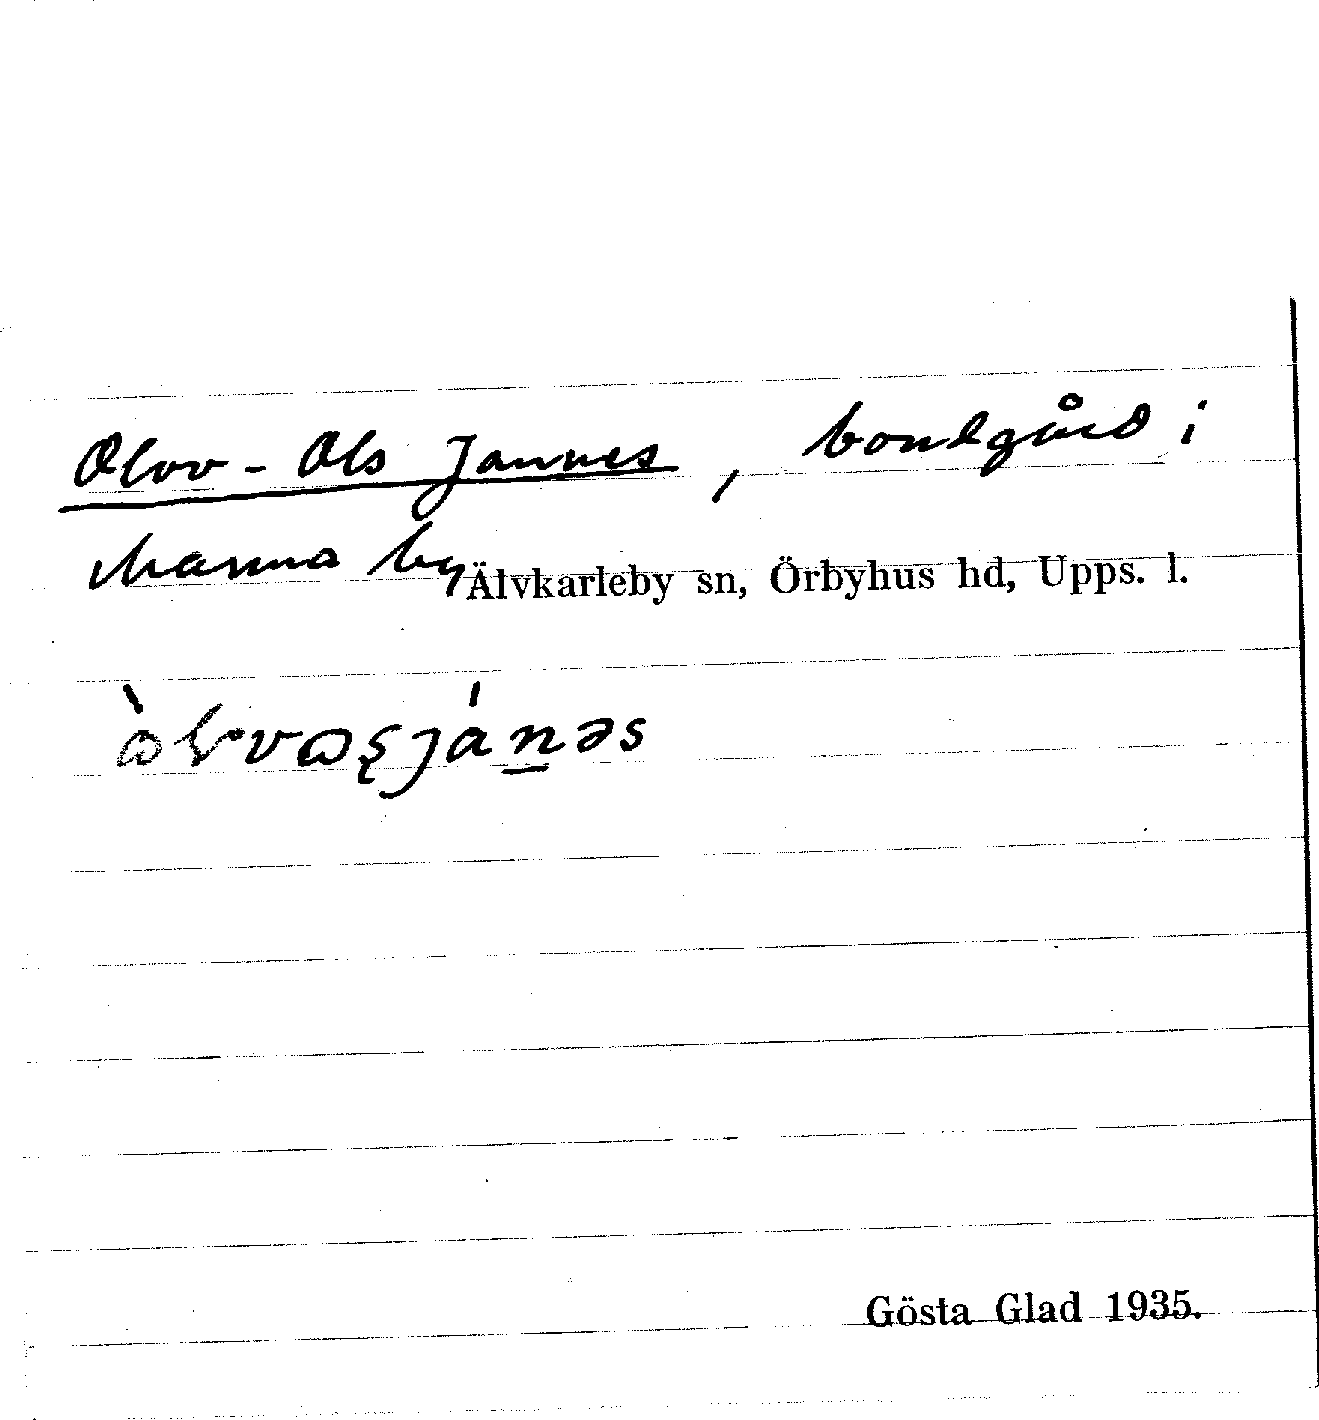 Olov-Ols Jannes, bondgård i
Marma by Älvkarleby sn, Örbyhus hd, Upps. l.
Gösta Glad 1935.